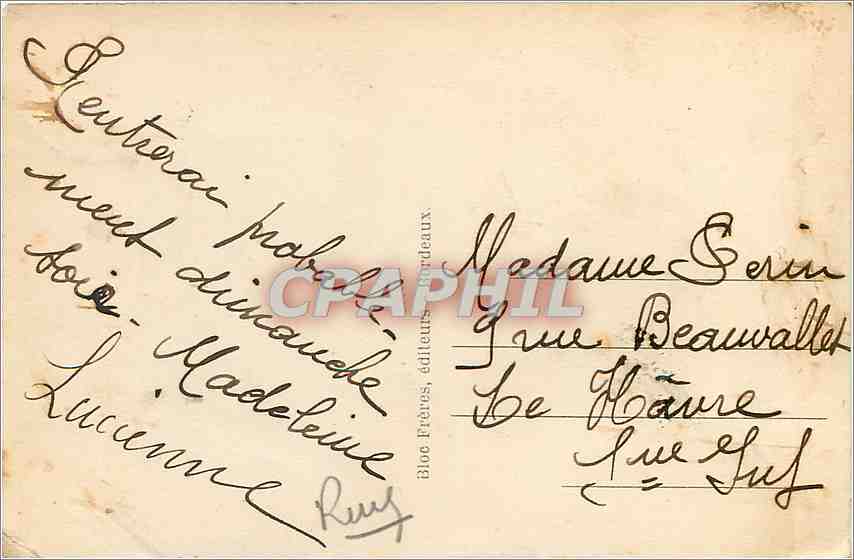 Rentrerai probable-
ment dimanche
soir. Madeleine
Lucienne
Bloc Frères, éditeurs Bordeaux.
CPAPHIL
Madame Serin
9 rue Beauvallet
Le Hâvre
Sne Inf